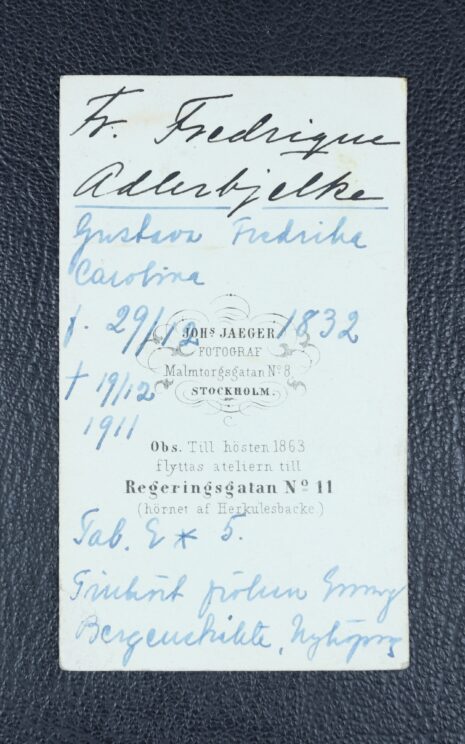 Fr. Fredrique
Adlerbjelke
Gustava Fredrika
Carolina
f. 29/12 1832
JOHS JAEGER
FOTOGRAF
Malmtorgsgatan No 8
STOCKHOLM.
† 19/12
1911
C.
Obs. Till hösten 1863
flyttas ateliern till
Regeringsgatan No 11
(hörnet af Herkulesbacke)
Tab. 2 * 5.
Tillhört fröken
Bergenskiöld, Nyköping